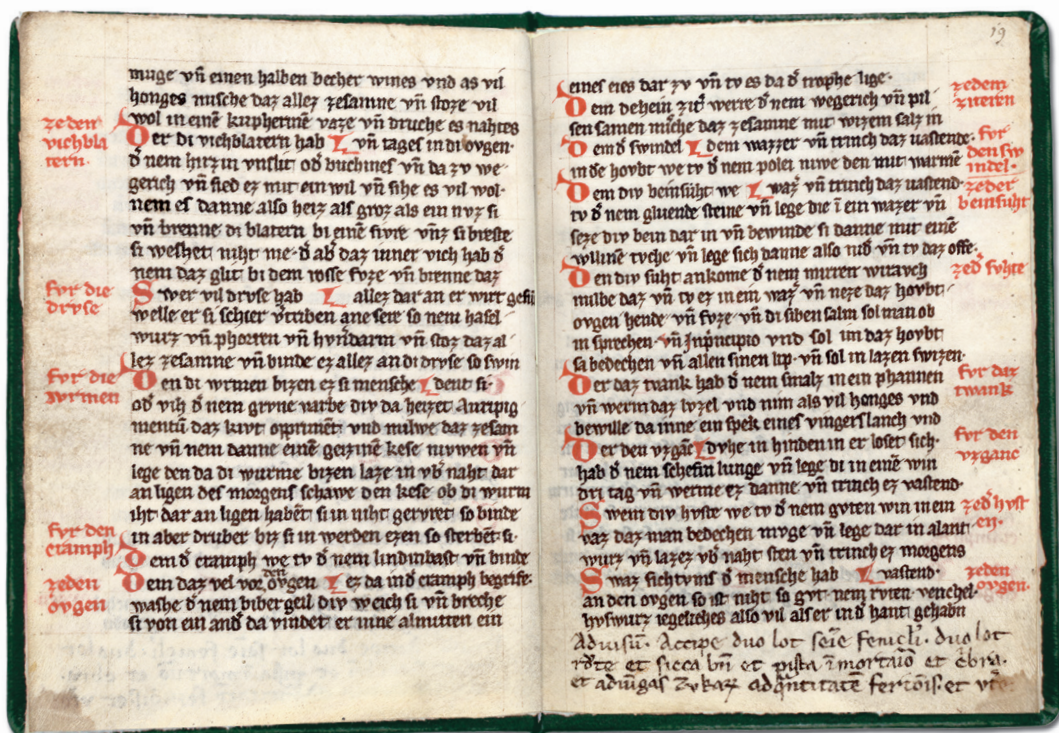 muge vn̄ einen halben becher wines vnd as vil
honges musche daz allez zesamne vn̄ stoze vil
wol in einē kupherinē vaze vn̄ druche es nahtes
zeden
vichbla
tern.
Der di vichblatern hab vn̄ tages in di ovgen.
d̓ nem hirzin vnslit od̓ buchines vn̄ da zv we
gerich vn̄ sied ez mit ein wil vn̄ sihe es vil wol.
nem es danne also heiz als groz als ein nvz si
vn̄ brenne di blatern bi einē fivre vn̄z si breste
si weshet niht me. d̓ ab̓ daz inner vich hab d̓
nem daz glut bi dem rosse fvze vn̄ brenne daz
fvr die
drvse
Swer vil drvse hab allez dar an er wirt gesūt
welle er si schier v̓triben ane seire so nem hasel
wurz vn̄ phorren vn̄ hvn̄darm vn̄ stoz daz al
lez zesamne vn̄ binde ez allez an di drvse so swin
fvr die
wrmen
Den di wrmen bizen ez si mensche dent si.
od̓ vih d̓ nem grvne varbe div da heizet Auripig
mentū daz kivt opprimēt vnd milwe daz zesam
ne vn̄ nem danne einē geizinē kese niwen vn̄
lege den da di wurme bizen laze in vb̓ naht dar
an ligen des morgens schawe den kese ob di wurm
iht dar an ligen habēt si in niht gervret so binde
in aber druber biz si in werden ezen so sterbēt si.
fvr den
cramph
Dem d̓ cramph we tv d̓ nem lindinbast vn̄ binde
zeden
ovgen
Dem daz vel vor den ovgen ez da in d̓ cramph begrife.
washe d̓ nem biber geil div weich si vn̄ breche
si von ein and̓ da vindet er inne almitten ein
19
eines eies dar zv vn̄ tv es da d̓ trophe lige.
zedem
zneren
Dem dehein zit̓ werre d̓ nem wegerich vn̄ pil
sen samen mische daz zesamne mit wizem salz in
fvr
den sw
indel.
Dem d̓ swindel dem wazzer vn̄ trinch daz vastende.
in de hovbt we tv d̓ nem polei niwe den mit warmē
zeder
beinsuht
Dem div beinsuht we waz̓ vn̄ trinch daz vastend.
tv d̓ nem gluende steine vn̄ lege die ī ein wazer vn̄
seze div bein dar in vn̄ bewinde si danne mit einē
wlline tvche vn̄ lege sich danne also nid̓ vn̄ tv daz offe.
zed̓ svhte
Den div suht ankome d̓ nem mirren wiravch
milbe daz vn̄ tv ez in ein waz̓ vn̄ neze daz hovbt
ovgen hende vn̄ fvze vn̄ di siben salm sol man ob
in sprechen vn̄ Jnpͥncipio vnd sol im daz hovbt
sa bedechen vn̄ allen sinen lip. vn̄ sol in lazen swizen.
fvr daz
twank
Der daz twank hab d̓ nem smalz in ein phannen
vn̄ werm daz lvzel vnd nim als vil honges vnd
bewille da inne ein spek eines vingers lanch vnd
fvr den
vzganc
Der den vzgāc dvhe in hinden in er loset sich.
hab d̓ nem schefin lunge vn̄ lege di in einē win
dri tag vn̄ werme ez danne vn̄ trinch ez vastend.
zed̓ hvst
en.
Swem div hvste we tv d̓ nem gvten win in ein
vaz daz man bedechen mvge vn̄ lege dar in alant
wurz vn̄ laz ez vb̓ naht sten vn̄ trinch ez morgens
zeden
ovgen.
Swaz sichtvms d̓ mensche hab vastend.
an den ovgen so ist niht so gvt nem rvten venchel.
hvswurz iegeliches also vil als er in d̓ hant gehabn
Ad visū. Accipe duo lot seīe feniclʼi. duo lot
rd̓te et sicca bn̄ et pista ī mortaīo et c̓bra.
et adiūgas Zvkarz ad q̄ntitatē fertōis. et vt̓e